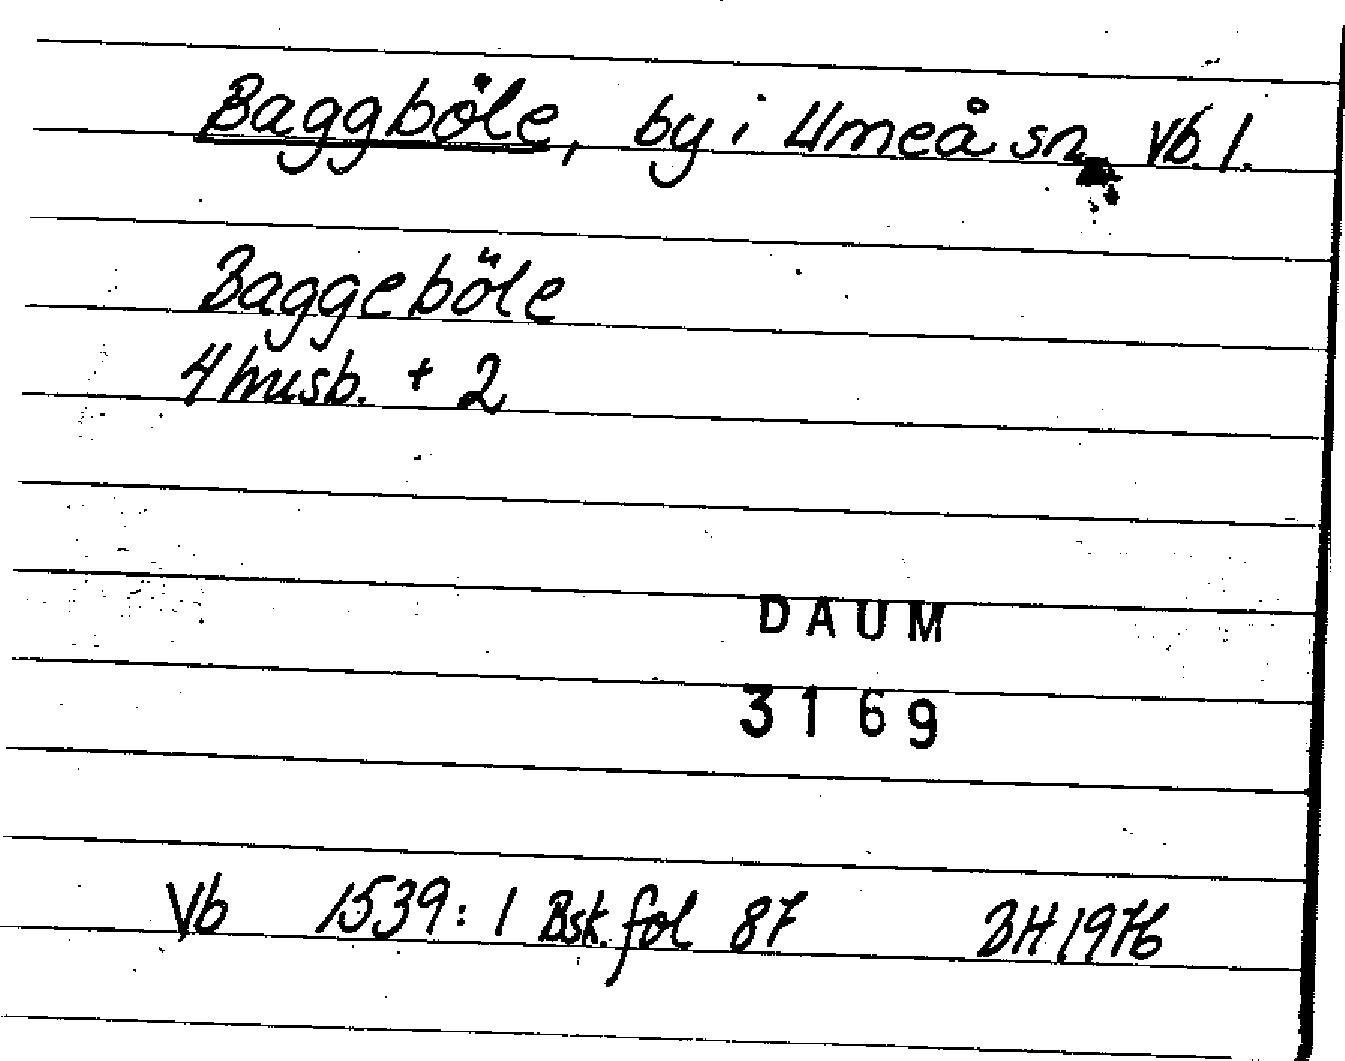 Baggböle, by i Umeå sn Vb. l.
Baggeböle
4 husb. + 2
DAUM
3169
Vb 1539:1 Bsk. fol 87 BH 1976